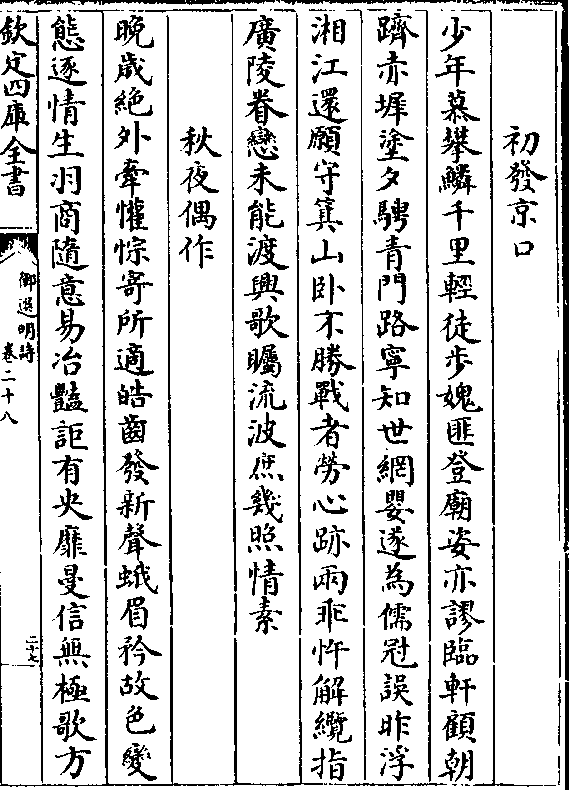 初發京口
少年慕攀鱗千里輕徒步媿匪登廟姿亦謬臨軒顧朝
躋赤墀塗夕騁青門路寧知世網嬰遂為儒冠誤昨浮
湘江還願守箕山卧不勝戰者勞心跡兩乖忤解纜指
廣陵眷戀未能渡興歌矚流波庶幾照情素
秋夜偶作
晚歲絶外牽懽悰寄所適皓齒發新聲蛾眉矜故色變
態逐情生羽商隨意易冶豔詎有央靡曼信無極歌方
欽定四庫全書
御選明詩
卷二十八
二十七